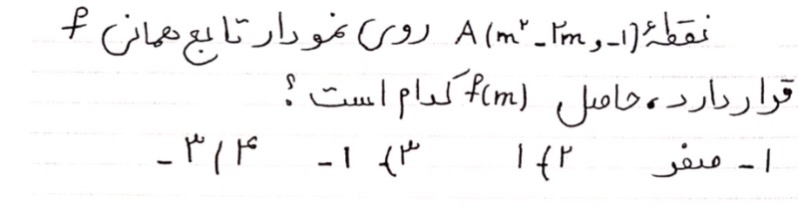 نقطهٔ A(m² - ۲m و -۱) روی نمودار تابع همانی f
قرار دارد، حاصل f(m) کدام است؟
۱- صفر ۲) ۱ ۳) -۱ ۴) -۳